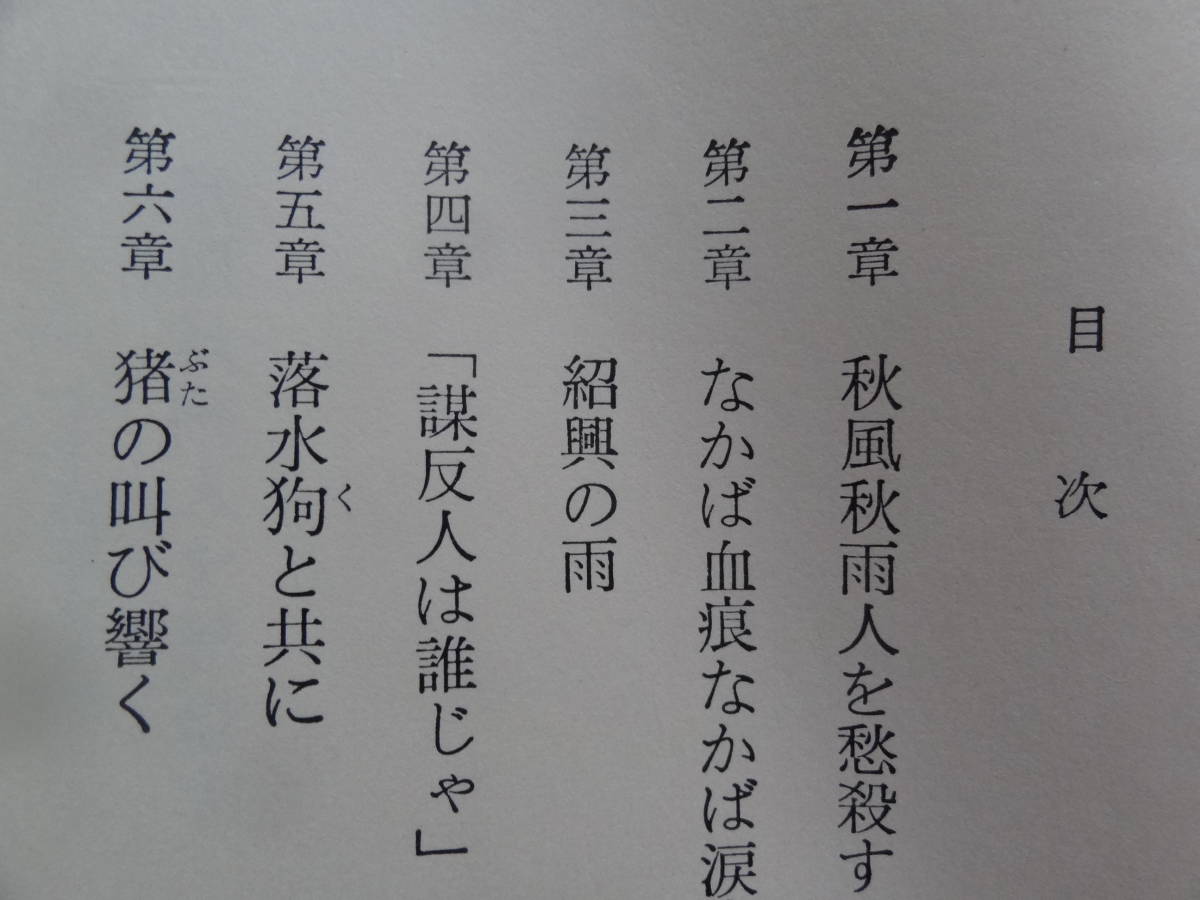 目次
第一章　秋風秋雨人を愁殺す
第二章　なかば血痕なかば涙
第三章　紹興の雨
第四章　「謀反人は誰じゃ」
第五章　落水狗と共に
く
第六章　猪の叫び響く
ぶた